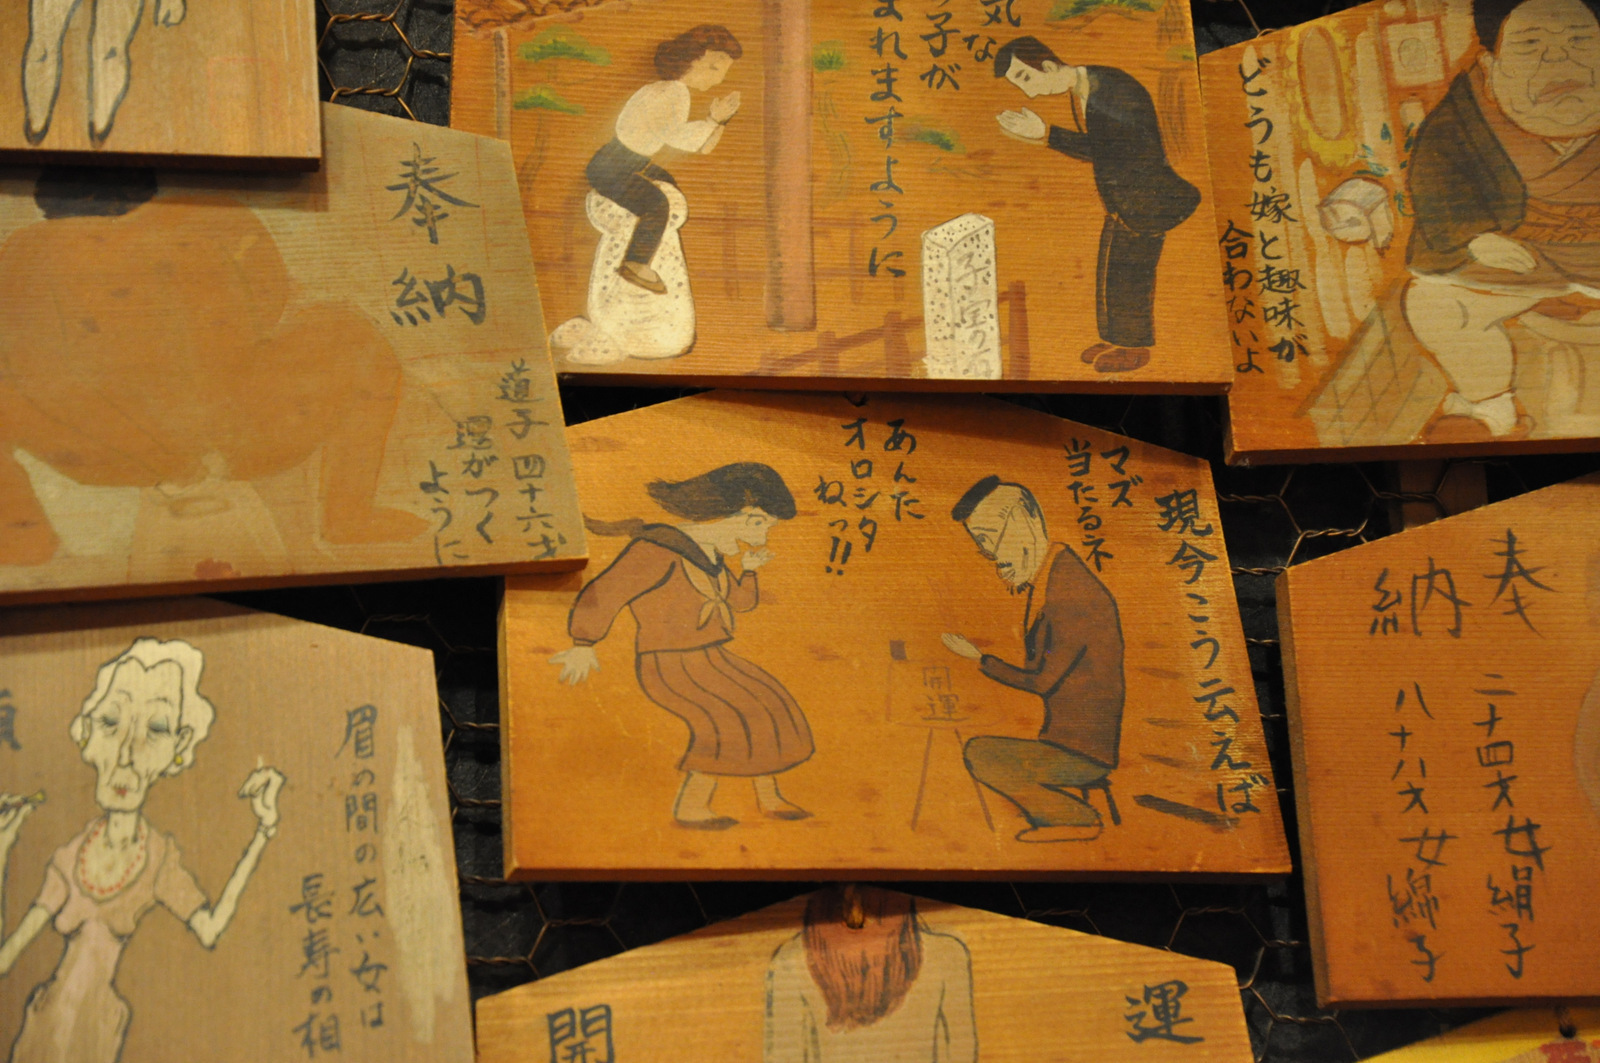 気な
子が
まれますように
子宝の
どうも嫁と趣味が
合わないよ
奉納
道子 四十六才
運がつく
ように
現今こう云えば
マズ
当たるネ
あんた
オロシタ
ねっ!!
開運
奉納
二十四才女絹子
八十八才女綿子
眉の間の広い女は
長寿の相
開運